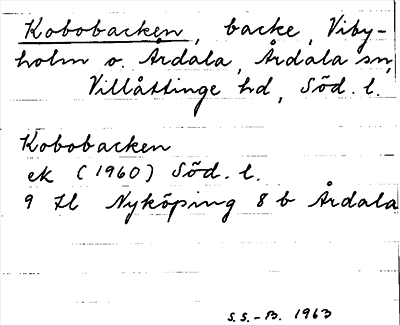 Kobobacken, backe, Viby-
holm o. Årdala, Årdala sn,
Villåttinge hd, Söd. l.
Kobobacken
ek (1960) Söd. l.
9 Hl Nyköping 8 b Årdala
S.S.-B. 1963